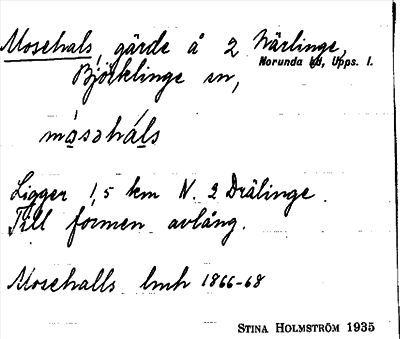 Mosehals, gärde å 2 Närlinge,
Norunda hd, Upps. l.
Björklinge sn,
måsəháls
Ligger 1,5 km N. 2 Drälinge.
Till formen avlång.
Mosehalls lmh 1866-68
STINA HOLMSTRÖM 1935